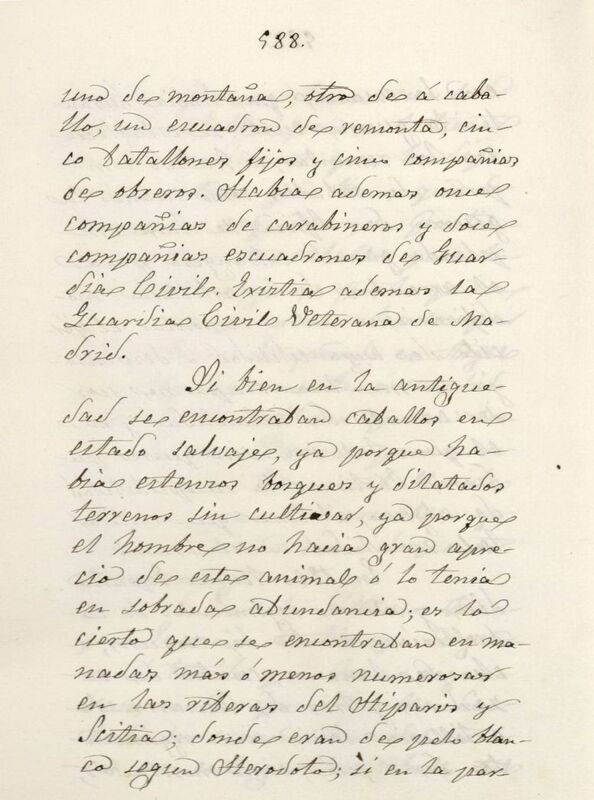 588.
uno de montaña, otro de á caba-
llo, un escuadron de remonta, cin-
co batallones fijos y cinco compañias
de obreros. Habia ademas once
compañias de carabineros y doce
compañias escuadrones de Guar-
dia Civil. Existia ademas la
Guardia Civil Veterana de Ma-
drid.
Si bien en la antigue-
dad se encontraban caballos en
estado salvaje, ya porque ha-
bia estensos bosques y dilatados
terrenos sin cultivar, ya porque
el hombre no hacia gran apre-
cio de este animal ó lo tenia
en sobrada abundancia; es lo
cierto que se encontraban en ma-
nadas más ó menos numerosas
en las riberas del Hiparis y
Scitia; donde eran de pelo blan-
co segun Herodoto; si en la par-